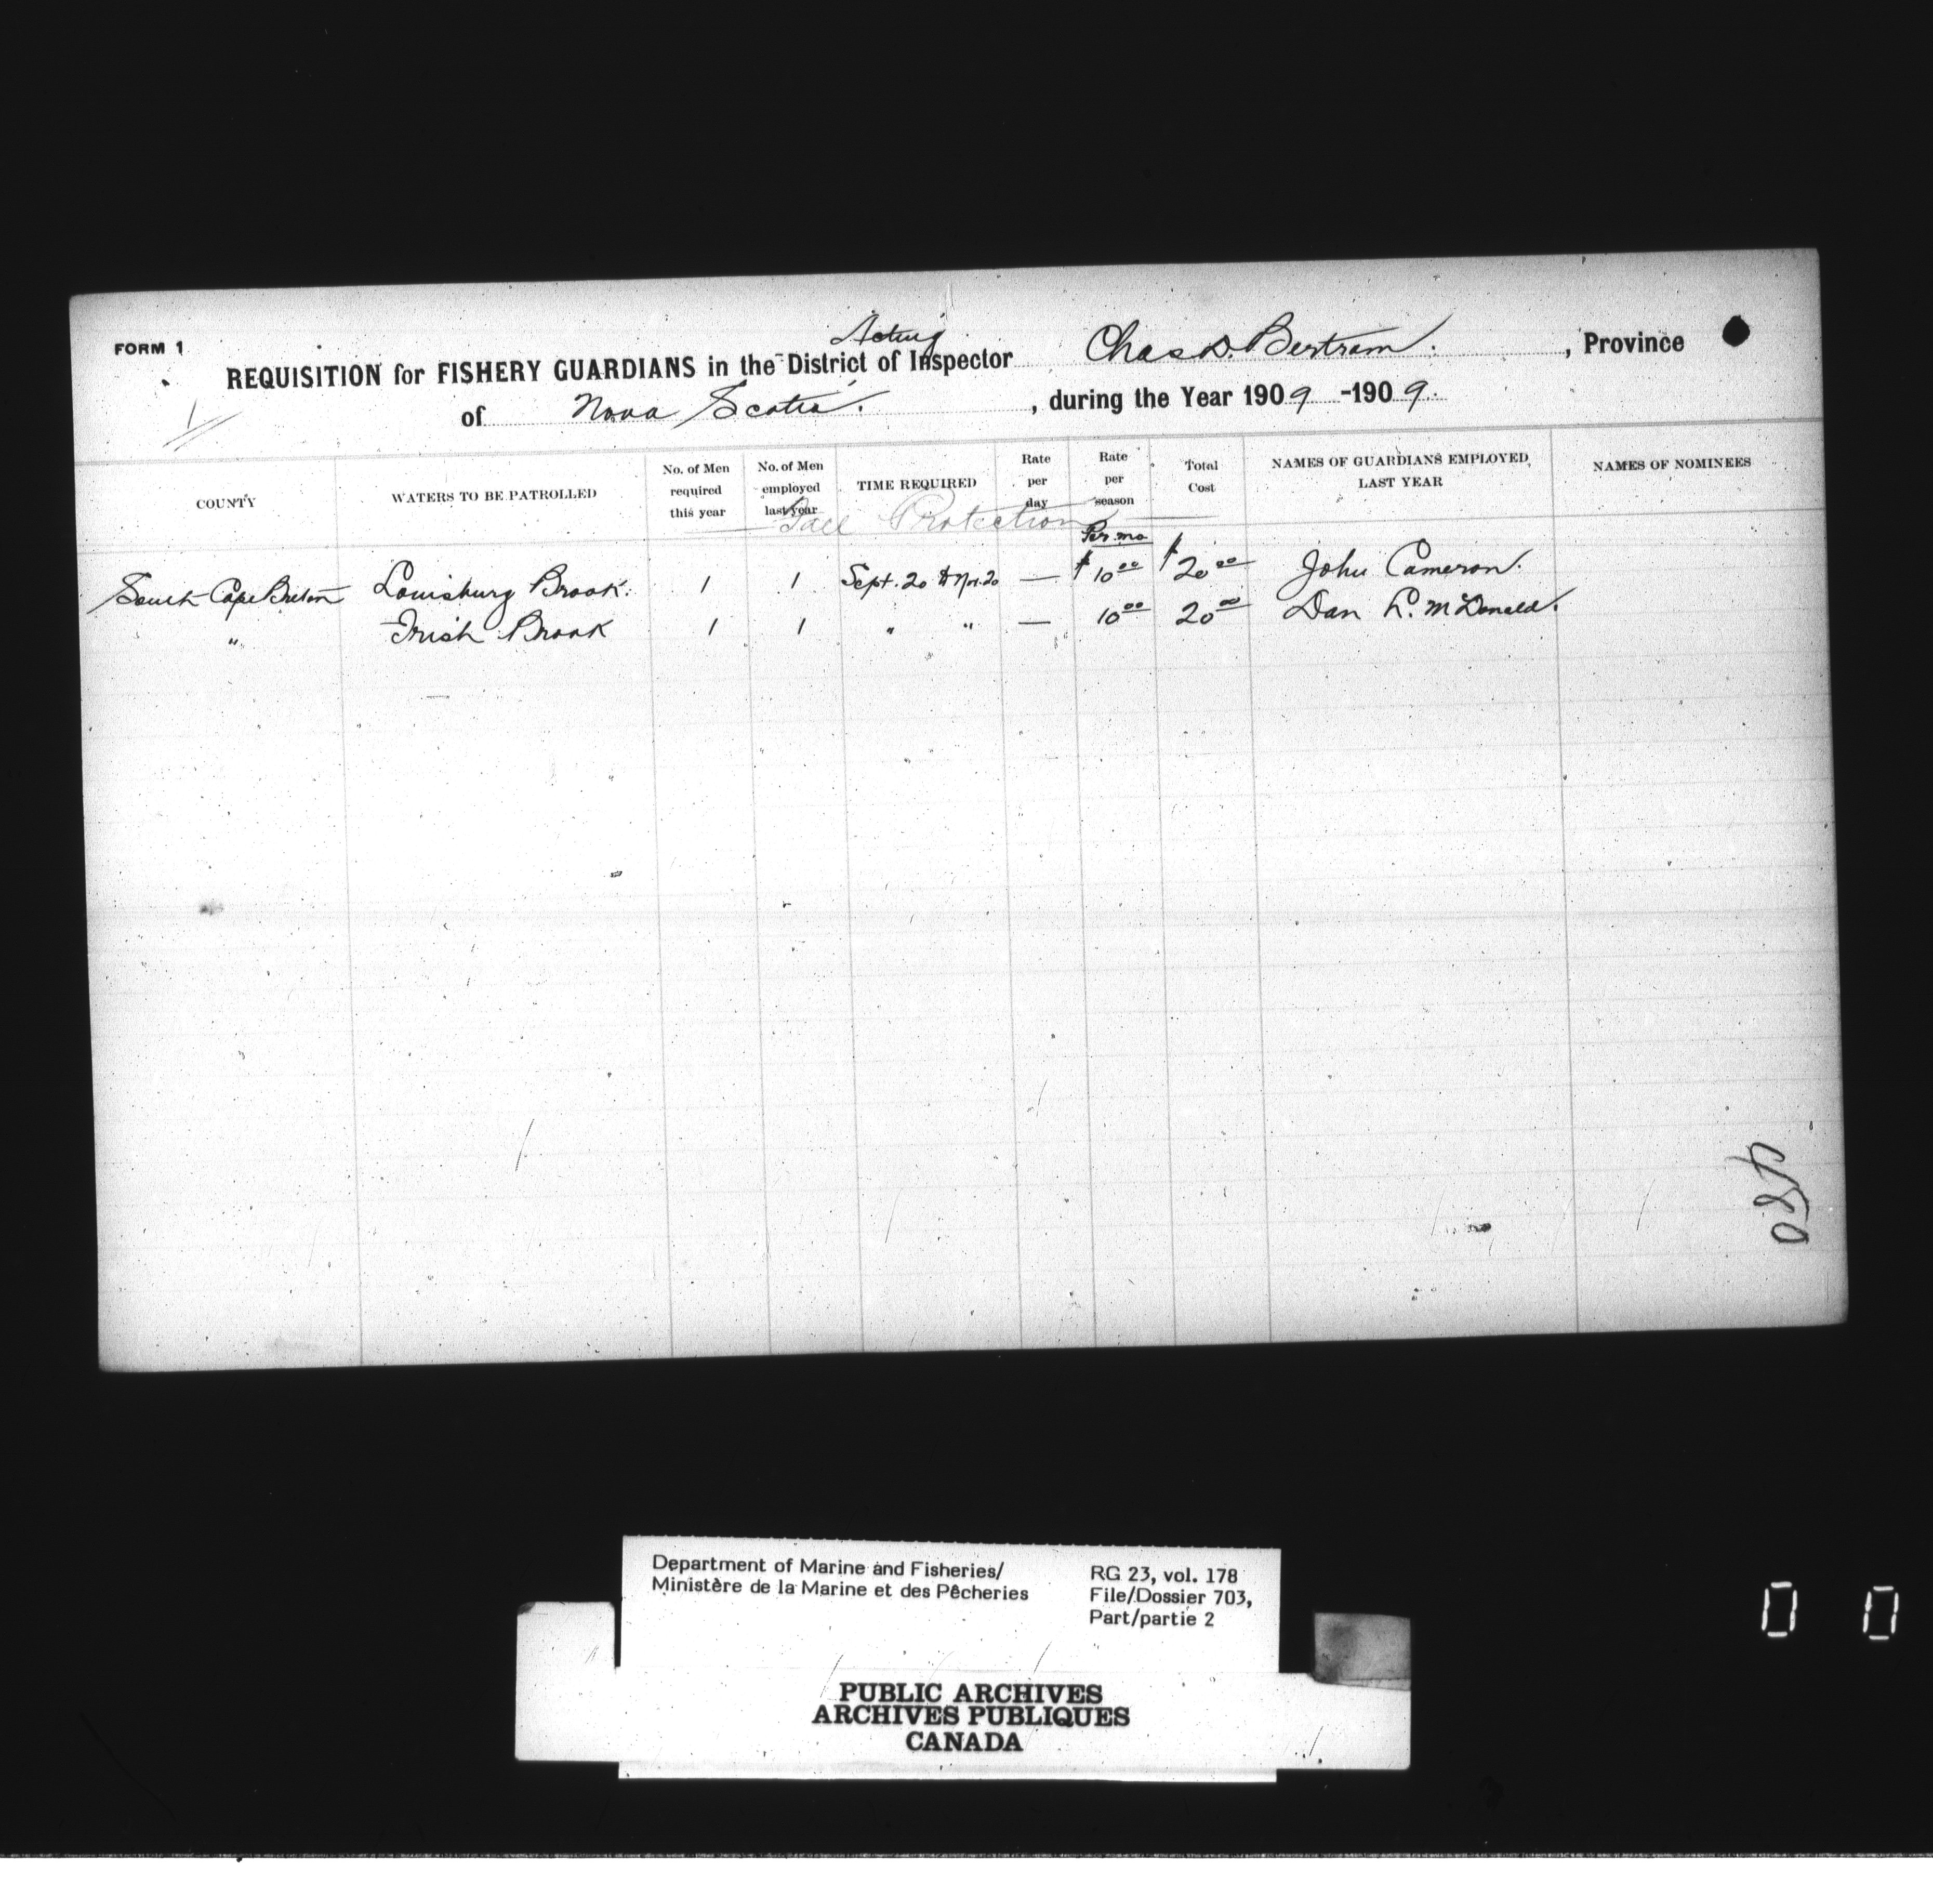 FORM 1
Acting
REQUISITION for FISHERY GUARDIANS in the District of Inspector Chas D. Bertram. , Province
of Nova Scotia. , during the Year 1909 -1909.
COUNTY WATERS TO BE PATROLLED No. of Men required this year No. of Men employed last year TIME REQUIRED Rate per day Rate per season Total Cost NAMES OF GUARDIANS EMPLOYED LAST YEAR NAMES OF NOMINEES
Protection
Per. mo
South Cape Breton Louisburg Brook. 1 1 Sept. 20 to Nov. 20 — $10 00 $20 00 John Cameron.
" Irish Brook 1 1 " " — 10 00 20 00 Dan L. McDonald.
480
Department of Marine and Fisheries/ RG 23, vol. 178
Ministère de la Marine et des Pêcheries File/Dossier 703,
Part/partie 2
PUBLIC ARCHIVES
ARCHIVES PUBLIQUES
CANADA
0 0